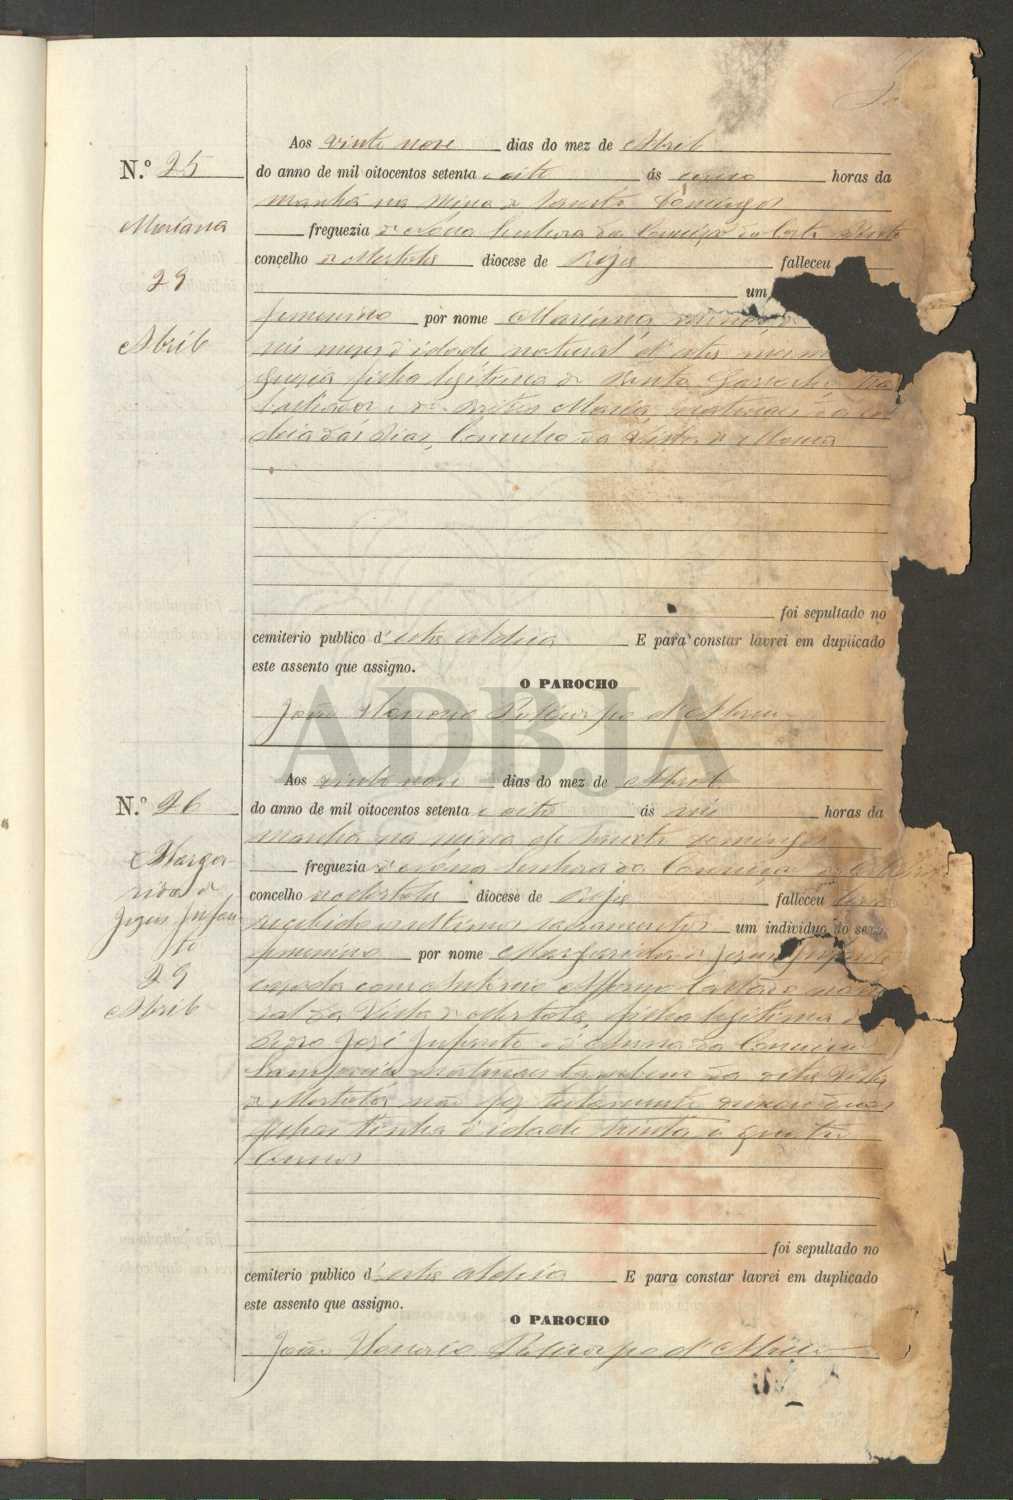 Aos vinte nove dias do mez de Abril
N.º 25
do anno de mil oitocentos setenta e oito ás cinco horas da
manhã na Mina de Sancto Domingos
Mariana
freguezia de Nossa Senhora da Conceição da Corte do Pinto
concelho de Mertola diocese de Beja falleceu
29
um
femenino por nome Mariana, menor
Abril
seis mezes d'idade natural d'esta mesma
guezia filha legitima de Bento Garrocho tra
balhador e de Brites Maria, naturais da al
deia das Dias, Concelho da Villa de Moura
foi sepultado no
cemiterio publico d'esta aldeia E para constar lavrei em duplicado
este assento que assigno.
O PAROCHO
João Honorio Policarpo d'Abreu
ADBJA
Aos vinte nove dias do mez de Abril
N.º 26
do anno de mil oitocentos setenta e oito ás seis horas da
manhã na mina de Sancto Domingos
Margarida de Jezus Infante
freguezia de Nossa Senhora da Conceição
concelho de Mertola diocese de Beja falleceu tendo
recebido os ultimos sacramentos um individuo do sexo
29
femenino por nome Margarida de Jezus Infante
Abril
cazada com Antonio Affonso Caetano natu
ral da Villa de Mertola, filha legitima de
Pedro José Infante e d'Anna da Conceição
naturaes tambem da dita Villa
de Mertola, não fez testamento deixou
filhos tinha d'idade trinta e quatro
annos
foi sepultado no
cemiterio publico d'esta aldeia E para constar lavrei em duplicado
este assento que assigno.
O PAROCHO
João Honorio Policarpo d'Abreu